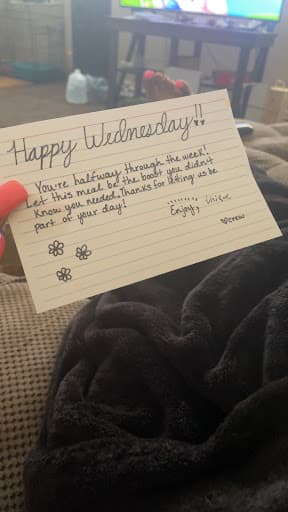 Happy Wednesday!!
You're halfway through the week!
Let this meal be the boost you didn't
know you needed. Thanks for letting us be
part of your day!
Enjoy,
♡crew